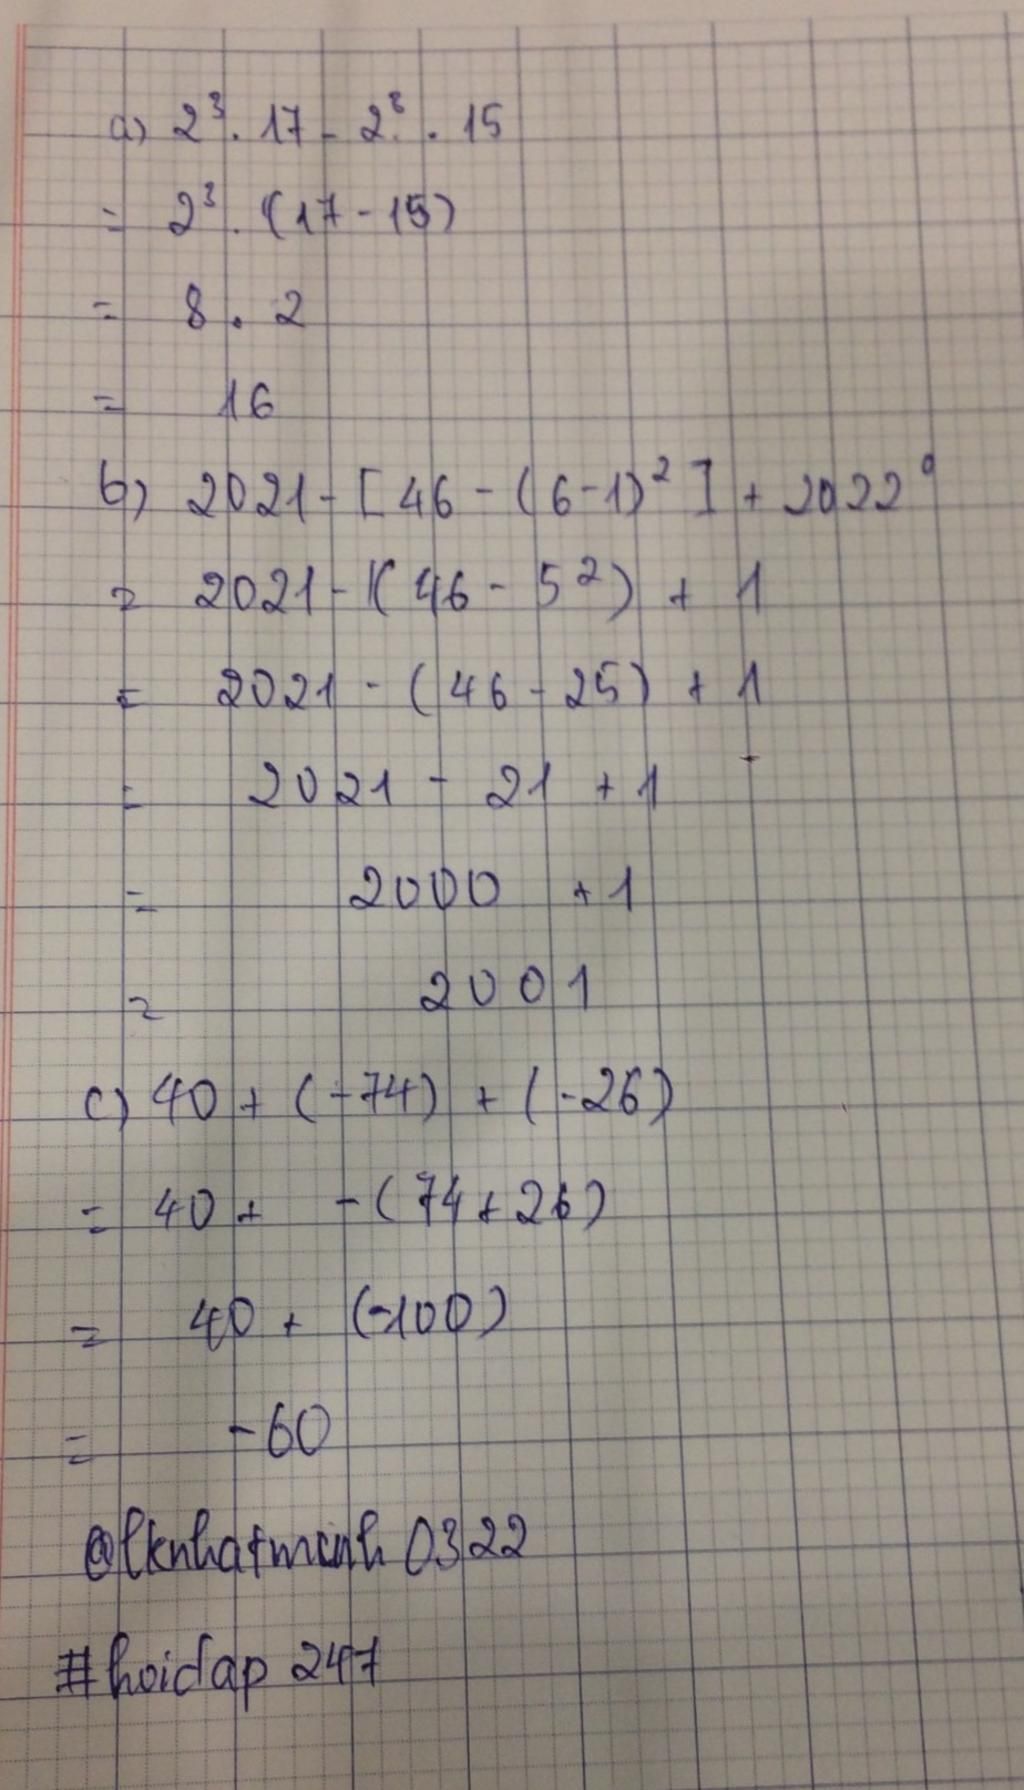 a) 2³ . 17 - 2³ . 15
= 2³ . (17 - 15)
= 8 . 2
= 16
b) 2021 - [46 - (6-1)²] + 2022⁰
= 2021 - (46 - 5²) + 1
= 2021 - (46 - 25) + 1
= 2021 - 21 + 1
= 2000 + 1
= 2001
c) 40 + (-74) + (-26)
= 40 + -(74+26)
= 40 + (-100)
= -60
@lknhatminh0322
#hoidap 247